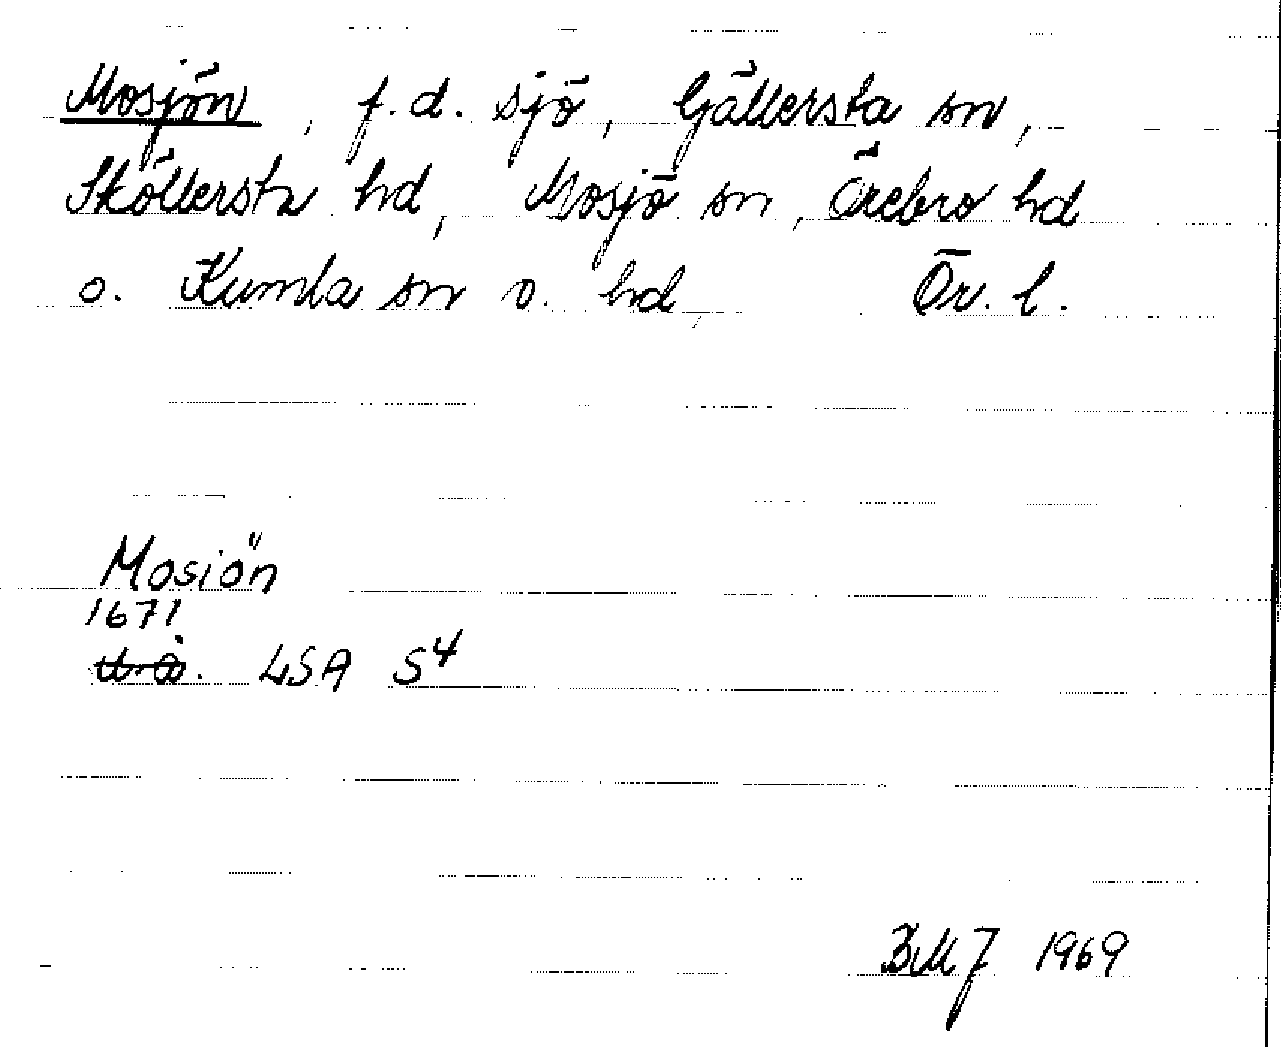 Mosjön, f.d. sjö, Gällersta sn,
Sköllersta hd, Mosjö sn, Örebro hd
o. Kumla sn o. hd, Ör. l.
Mosiön
1671
u.å. LSA S4
BMJ 1969